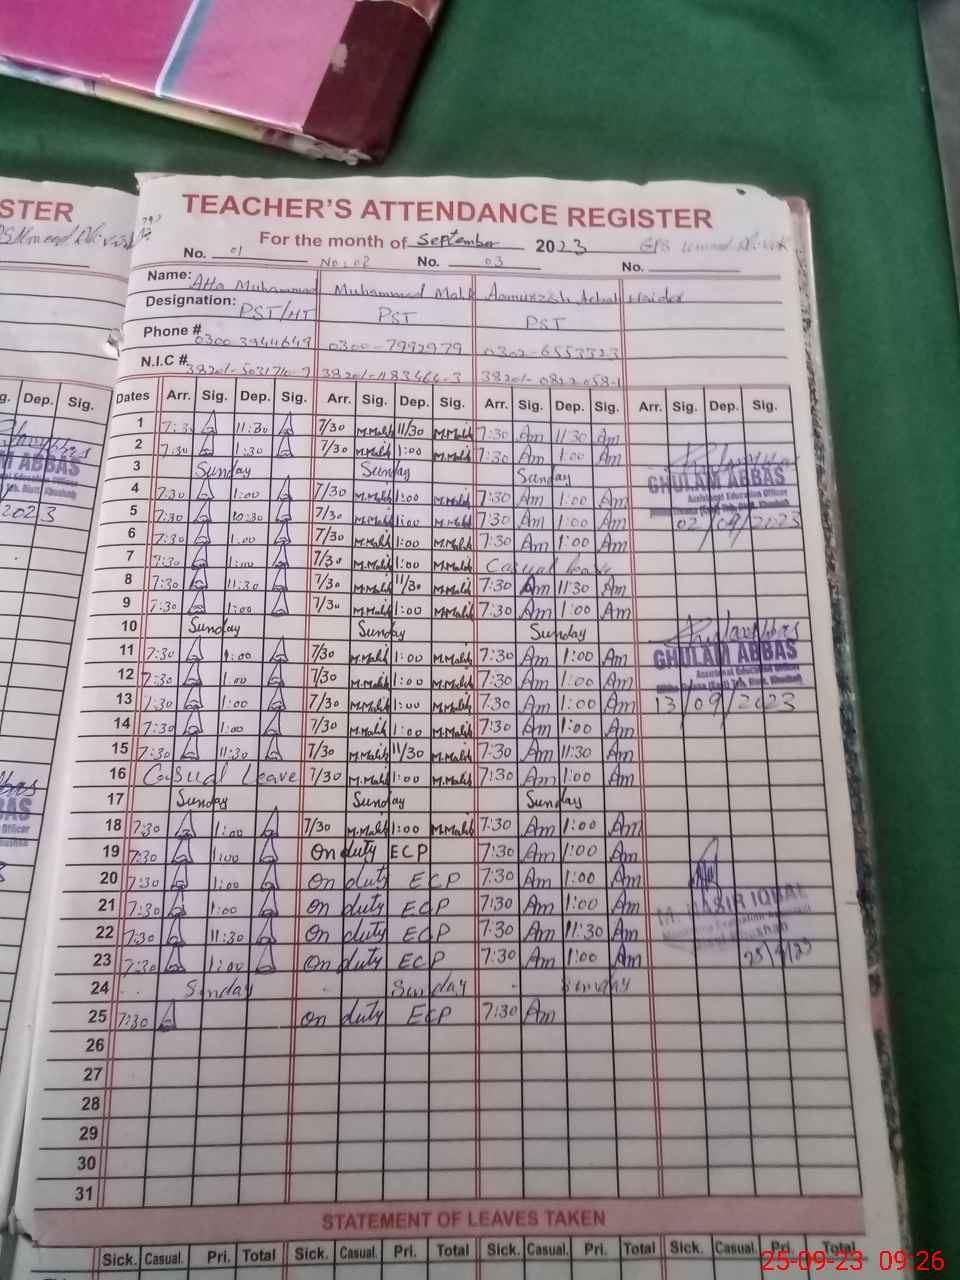 STER
TEACHER'S ATTENDANCE REGISTER
For the month of September 2023
No. 01 No. 02 No. 03 No.
Name: Atta Muhammad Muhammad Malik Haider
Designation: PST/HT PST PST
Phone # 0300 3944649 0300-7992979 0302-6553323
N.I.C #
g. Dep. Sig.
Dates Arr. Sig. Dep. Sig. Arr. Sig. Dep. Sig. Arr. Sig. Dep. Sig. Arr. Sig. Dep. Sig.
1 7:30 11:30 7/30 M.Malik 11/30 M.Malik 7:30 Am 11:30 Am
2 7:30 1:30 7/30 M.Malik 1:00 M.Malik 7:30 Am 1:00 Am
3 Sunday Sunday Sunday
M ABBAS
GHULAM ABBAS
Assistant Education Officer
4 7:30 1:00 7/30 M.Malik 1:00 M.Malik 7:30 Am 1:00 Am
2023
5 7:30 10:30 7/30 M.Malik 1:00 M.Malik 7:30 Am 1:00 Am
02/09/2023
6 7:30 1:00 7/30 M.Malik 1:00 M.Malik 7:30 Am 1:00 Am
7 7:30 1:00 7/30 M.Malik 1:00 M.Malik Casual leave
8 7:30 11:30 7/30 M.Malik 11/30 M.Malik 7:30 Am 11:30 Am
9 7:30 1:00 7/30 M.Malik 1:00 M.Malik 7:30 Am 1:00 Am
10 Sunday Sunday Sunday
11 7:30 1:00 7/30 M.Malik 1:00 M.Malik 7:30 Am 1:00 Am
GHULAM ABBAS
Assistant Education Officer
12 7:30 1:00 7/30 M.Malik 1:00 M.Malik 7:30 Am 1:00 Am
13 7:30 1:00 7/30 M.Malik 1:00 M.Malik 7:30 Am 1:00 Am
13/09/2023
14 7:30 1:00 7/30 M.Malik 1:00 M.Malik 7:30 Am 1:00 Am
15 7:30 11:30 7/30 M.Malik 11/30 M.Malik 7:30 Am 11:30 Am
16 Casual Leave 7/30 M.Malik 1:00 M.Malik 7:30 Am 1:00 Am
17 Sunday Sunday Sunday
BAS
Officer
18 7:30 1:00 7/30 M.Malik 1:00 M.Malik 7:30 Am 1:00 Am
19 7:30 1:00 On duty ECP 7:30 Am 1:00 Am
20 7:30 1:00 On duty ECP 7:30 Am 1:00 Am
21 7:30 1:00 On duty ECP 7:30 Am 1:00 Am
M. NASIR IQBAL
22 7:30 11:30 On duty ECP 7:30 Am 11:30 Am
23 7:30 1:00 On duty ECP 7:30 Am 1:00 Am
25/9/23
24 Sunday Sunday Sunday
25 7:30 On duty ECP 7:30 Am
26
27
28
29
30
31
STATEMENT OF LEAVES TAKEN
Sick. Casual. Pri. Total Sick. Casual. Pri. Total Sick. Casual. Pri. Total Sick. Casual. Pri. Total
25-09-23 09:26